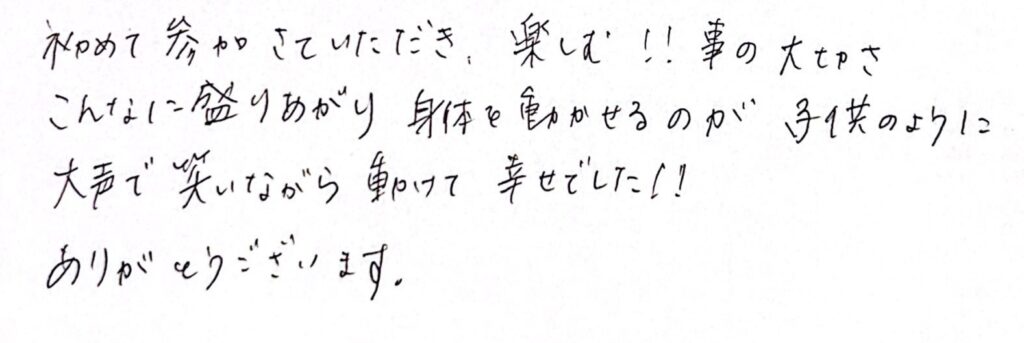 初めて参加さていただき、楽しむ!!事の大切さ
こんなに盛りあがり 身体を動かせるのが 子供のように
大声で笑いながら動けて 幸せでした!!
ありがとうございます.